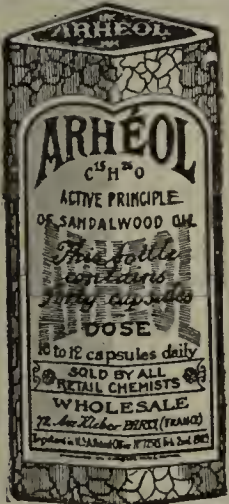 ARHÉOL
ARHÉOL
C¹⁵H²⁶O
ACTIVE PRINCIPLE
OF SANDALWOOD OIL
This bottle
contains
forty capsules
DOSE
10 to 12 capsules daily
SOLD BY ALL
RETAIL CHEMISTS
WHOLESALE
72, Ave Kleber PARIS (FRANCE)